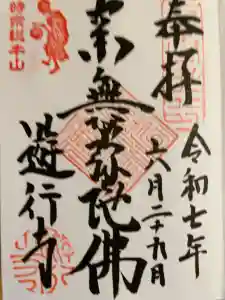 奉拝
令和七年
六月二十九日
南無阿弥陀佛
遊行寺
時宗総本山